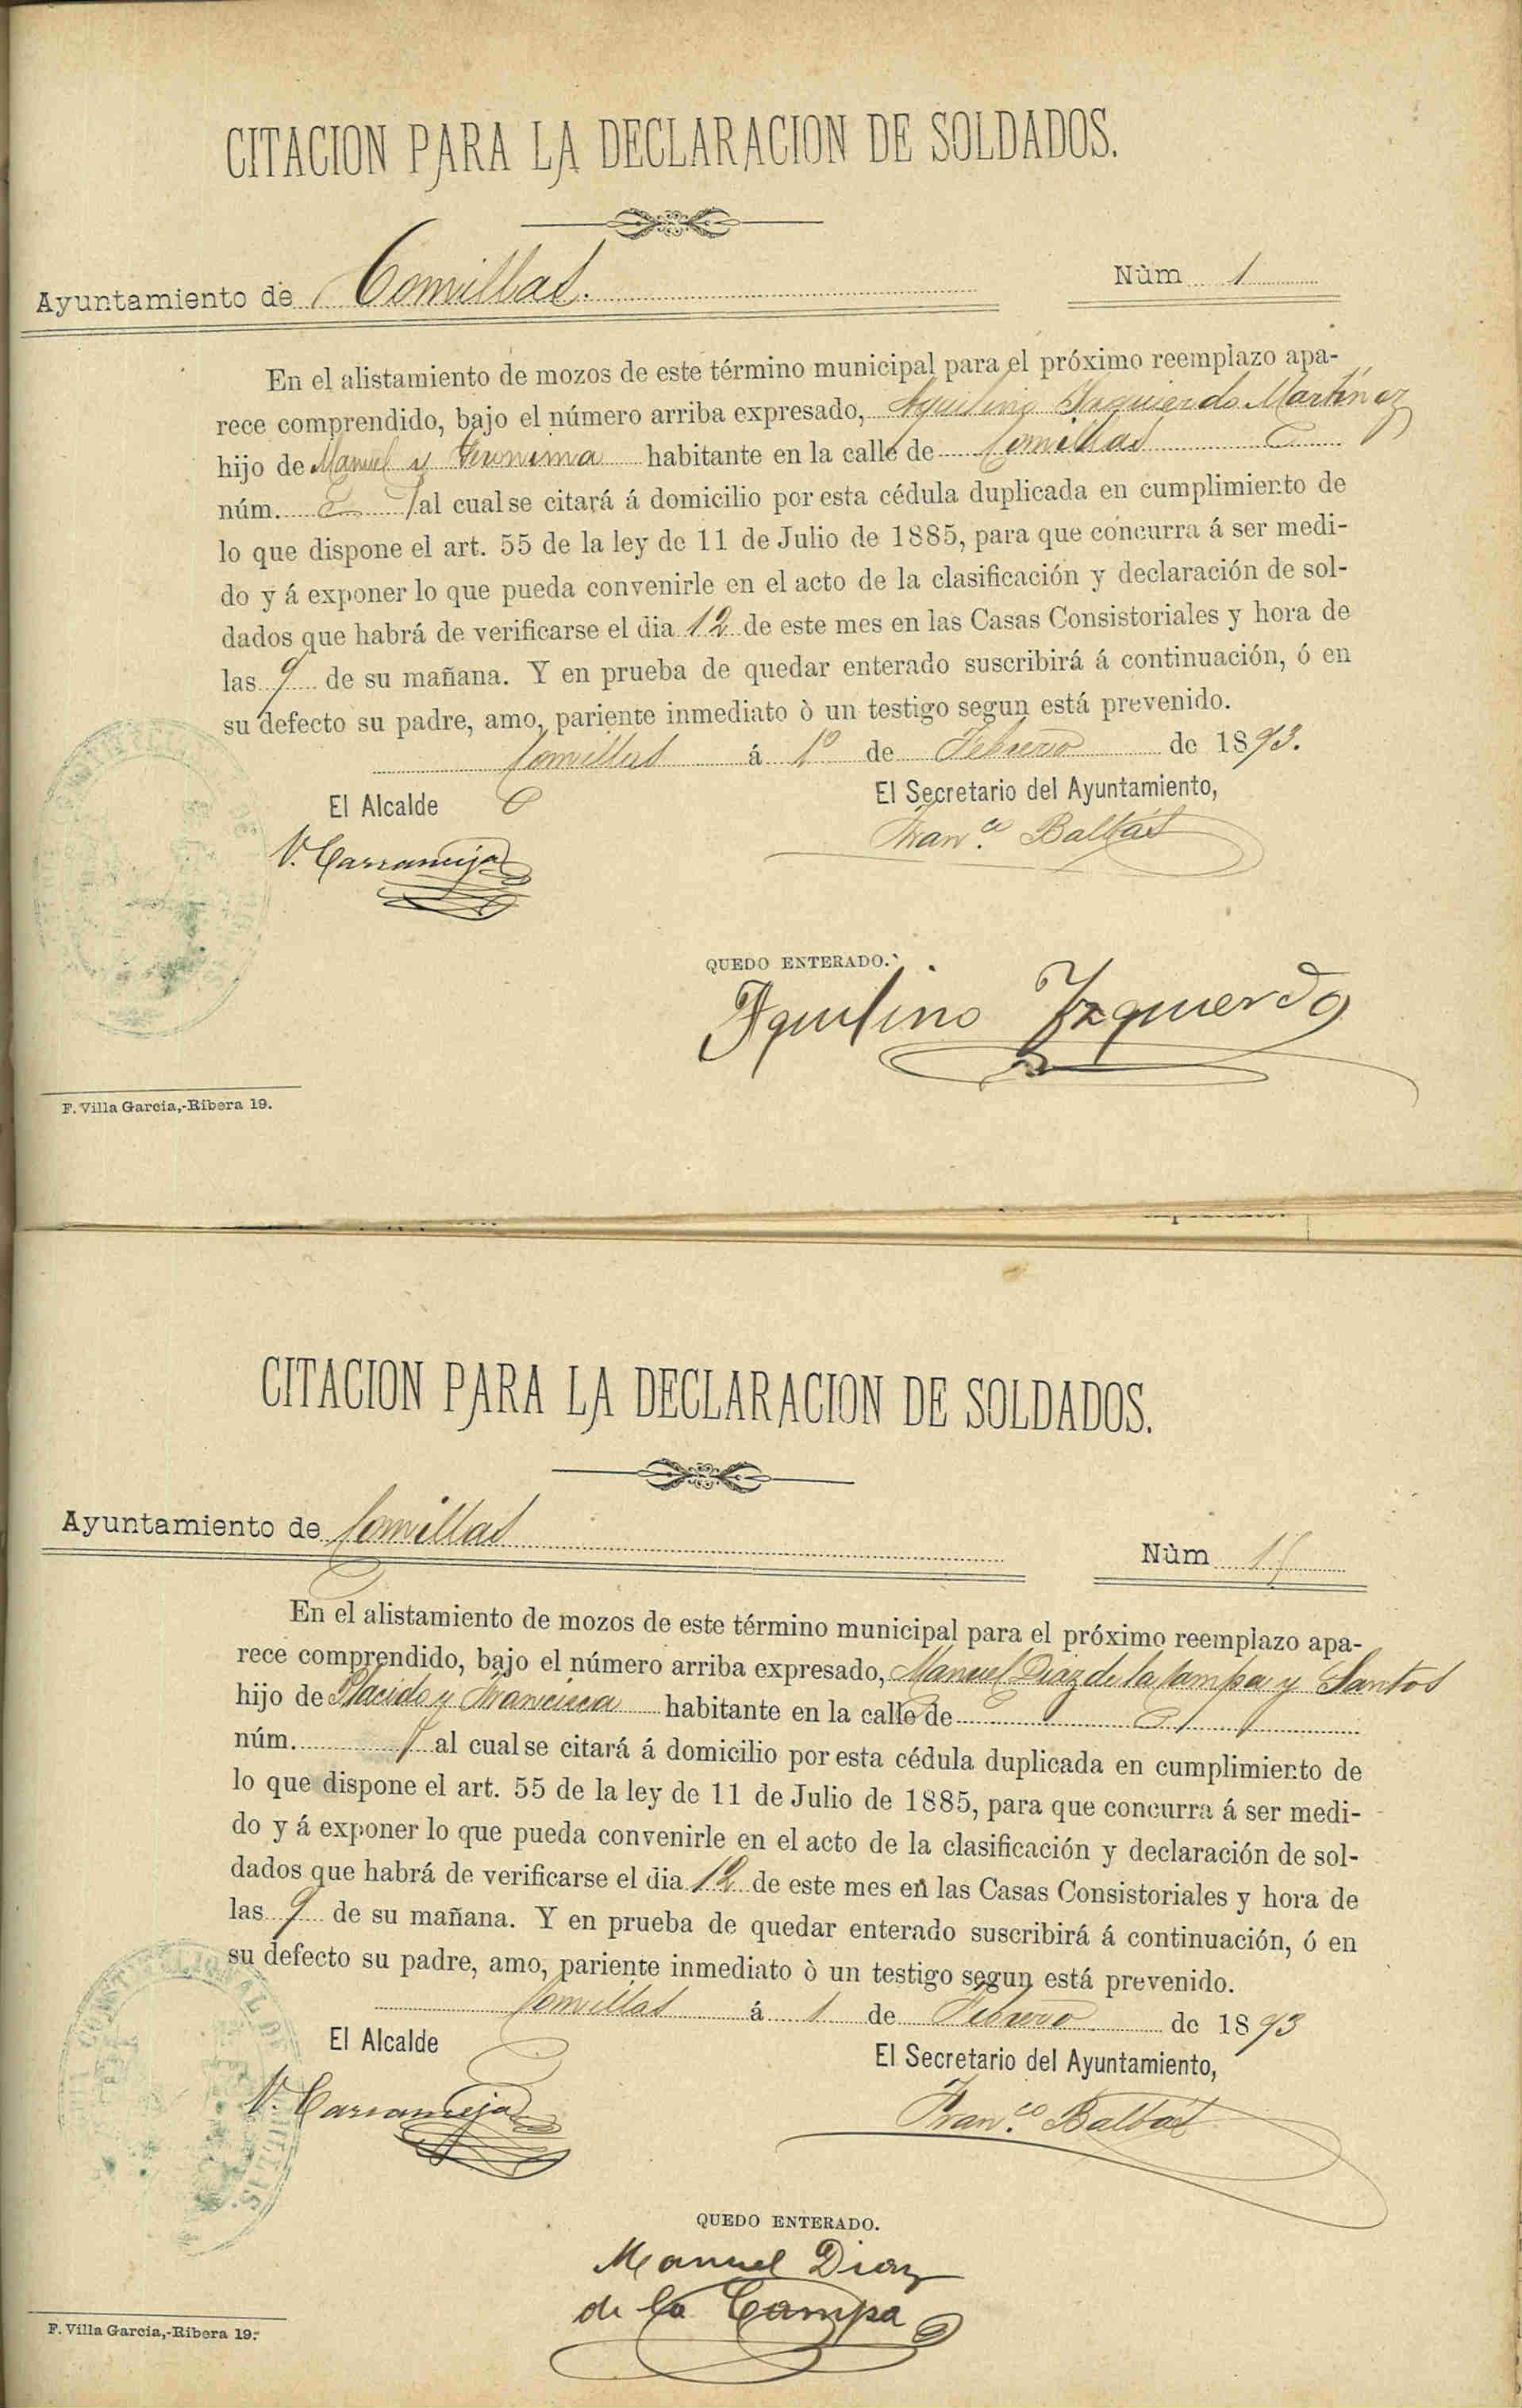 CITACION PARA LA DECLARACION DE SOLDADOS.
Ayuntamiento de Comillas.
Núm 1
En el alistamiento de mozos de este término municipal para el próximo reemplazo apa-
rece comprendido, bajo el número arriba expresado, Aquilino Izquierdo Martínez
hijo de Manuel y Geronima habitante en la calle de Comillas
núm. al cual se citará á domicilio por esta cédula duplicada en cumplimiento de
lo que dispone el art. 55 de la ley de 11 de Julio de 1885, para que concurra á ser medi-
do y á exponer lo que pueda convenirle en el acto de la clasificación y declaración de sol-
dados que habrá de verificarse el dia 12 de este mes en las Casas Consistoriales y hora de
las 9 de su mañana. Y en prueba de quedar enterado suscribirá á continuación, ó en
su defecto su padre, amo, pariente inmediato ò un testigo segun está prevenido.
Comillas á 1º de Febrero de 1893.
El Alcalde
El Secretario del Ayuntamiento,
V. Carranceja
Fran.co Balbás
QUEDO ENTERADO.
Aquilino Izquierdo
F. Villa Garcia,-Ribera 19.
CITACION PARA LA DECLARACION DE SOLDADOS.
Ayuntamiento de Comillas
Núm
En el alistamiento de mozos de este término municipal para el próximo reemplazo apa-
rece comprendido, bajo el número arriba expresado, Manuel Diaz de la Campa y Santos
hijo de Placido y Francisca habitante en la calle de
núm. al cual se citará á domicilio por esta cédula duplicada en cumplimiento de
lo que dispone el art. 55 de la ley de 11 de Julio de 1885, para que concurra á ser medi-
do y á exponer lo que pueda convenirle en el acto de la clasificación y declaración de sol-
dados que habrá de verificarse el dia 12 de este mes en las Casas Consistoriales y hora de
las 9 de su mañana. Y en prueba de quedar enterado suscribirá á continuación, ó en
su defecto su padre, amo, pariente inmediato ò un testigo segun está prevenido.
Comillas á 1 de Febrero de 1893
El Alcalde
El Secretario del Ayuntamiento,
V. Carranceja
Fran.co Balbás
QUEDO ENTERADO.
Manuel Diaz
de la Campa
F. Villa Garcia,-Ribera 19.